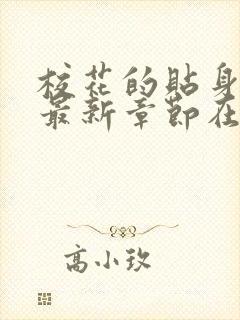 校花的贴身
最新章节在
高小玫